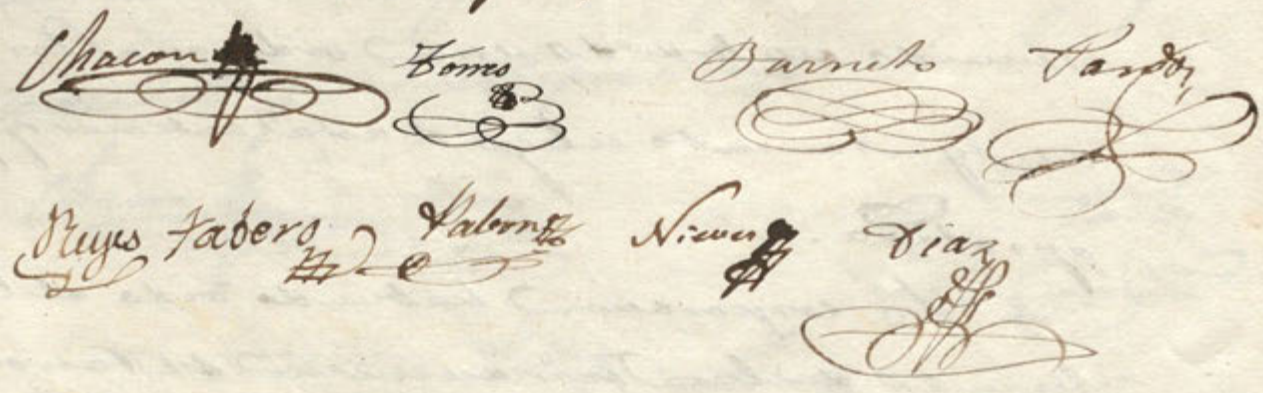 Chacon Torres Barreto Pardo
Reyes Tabero Pabon Nieves Diaz